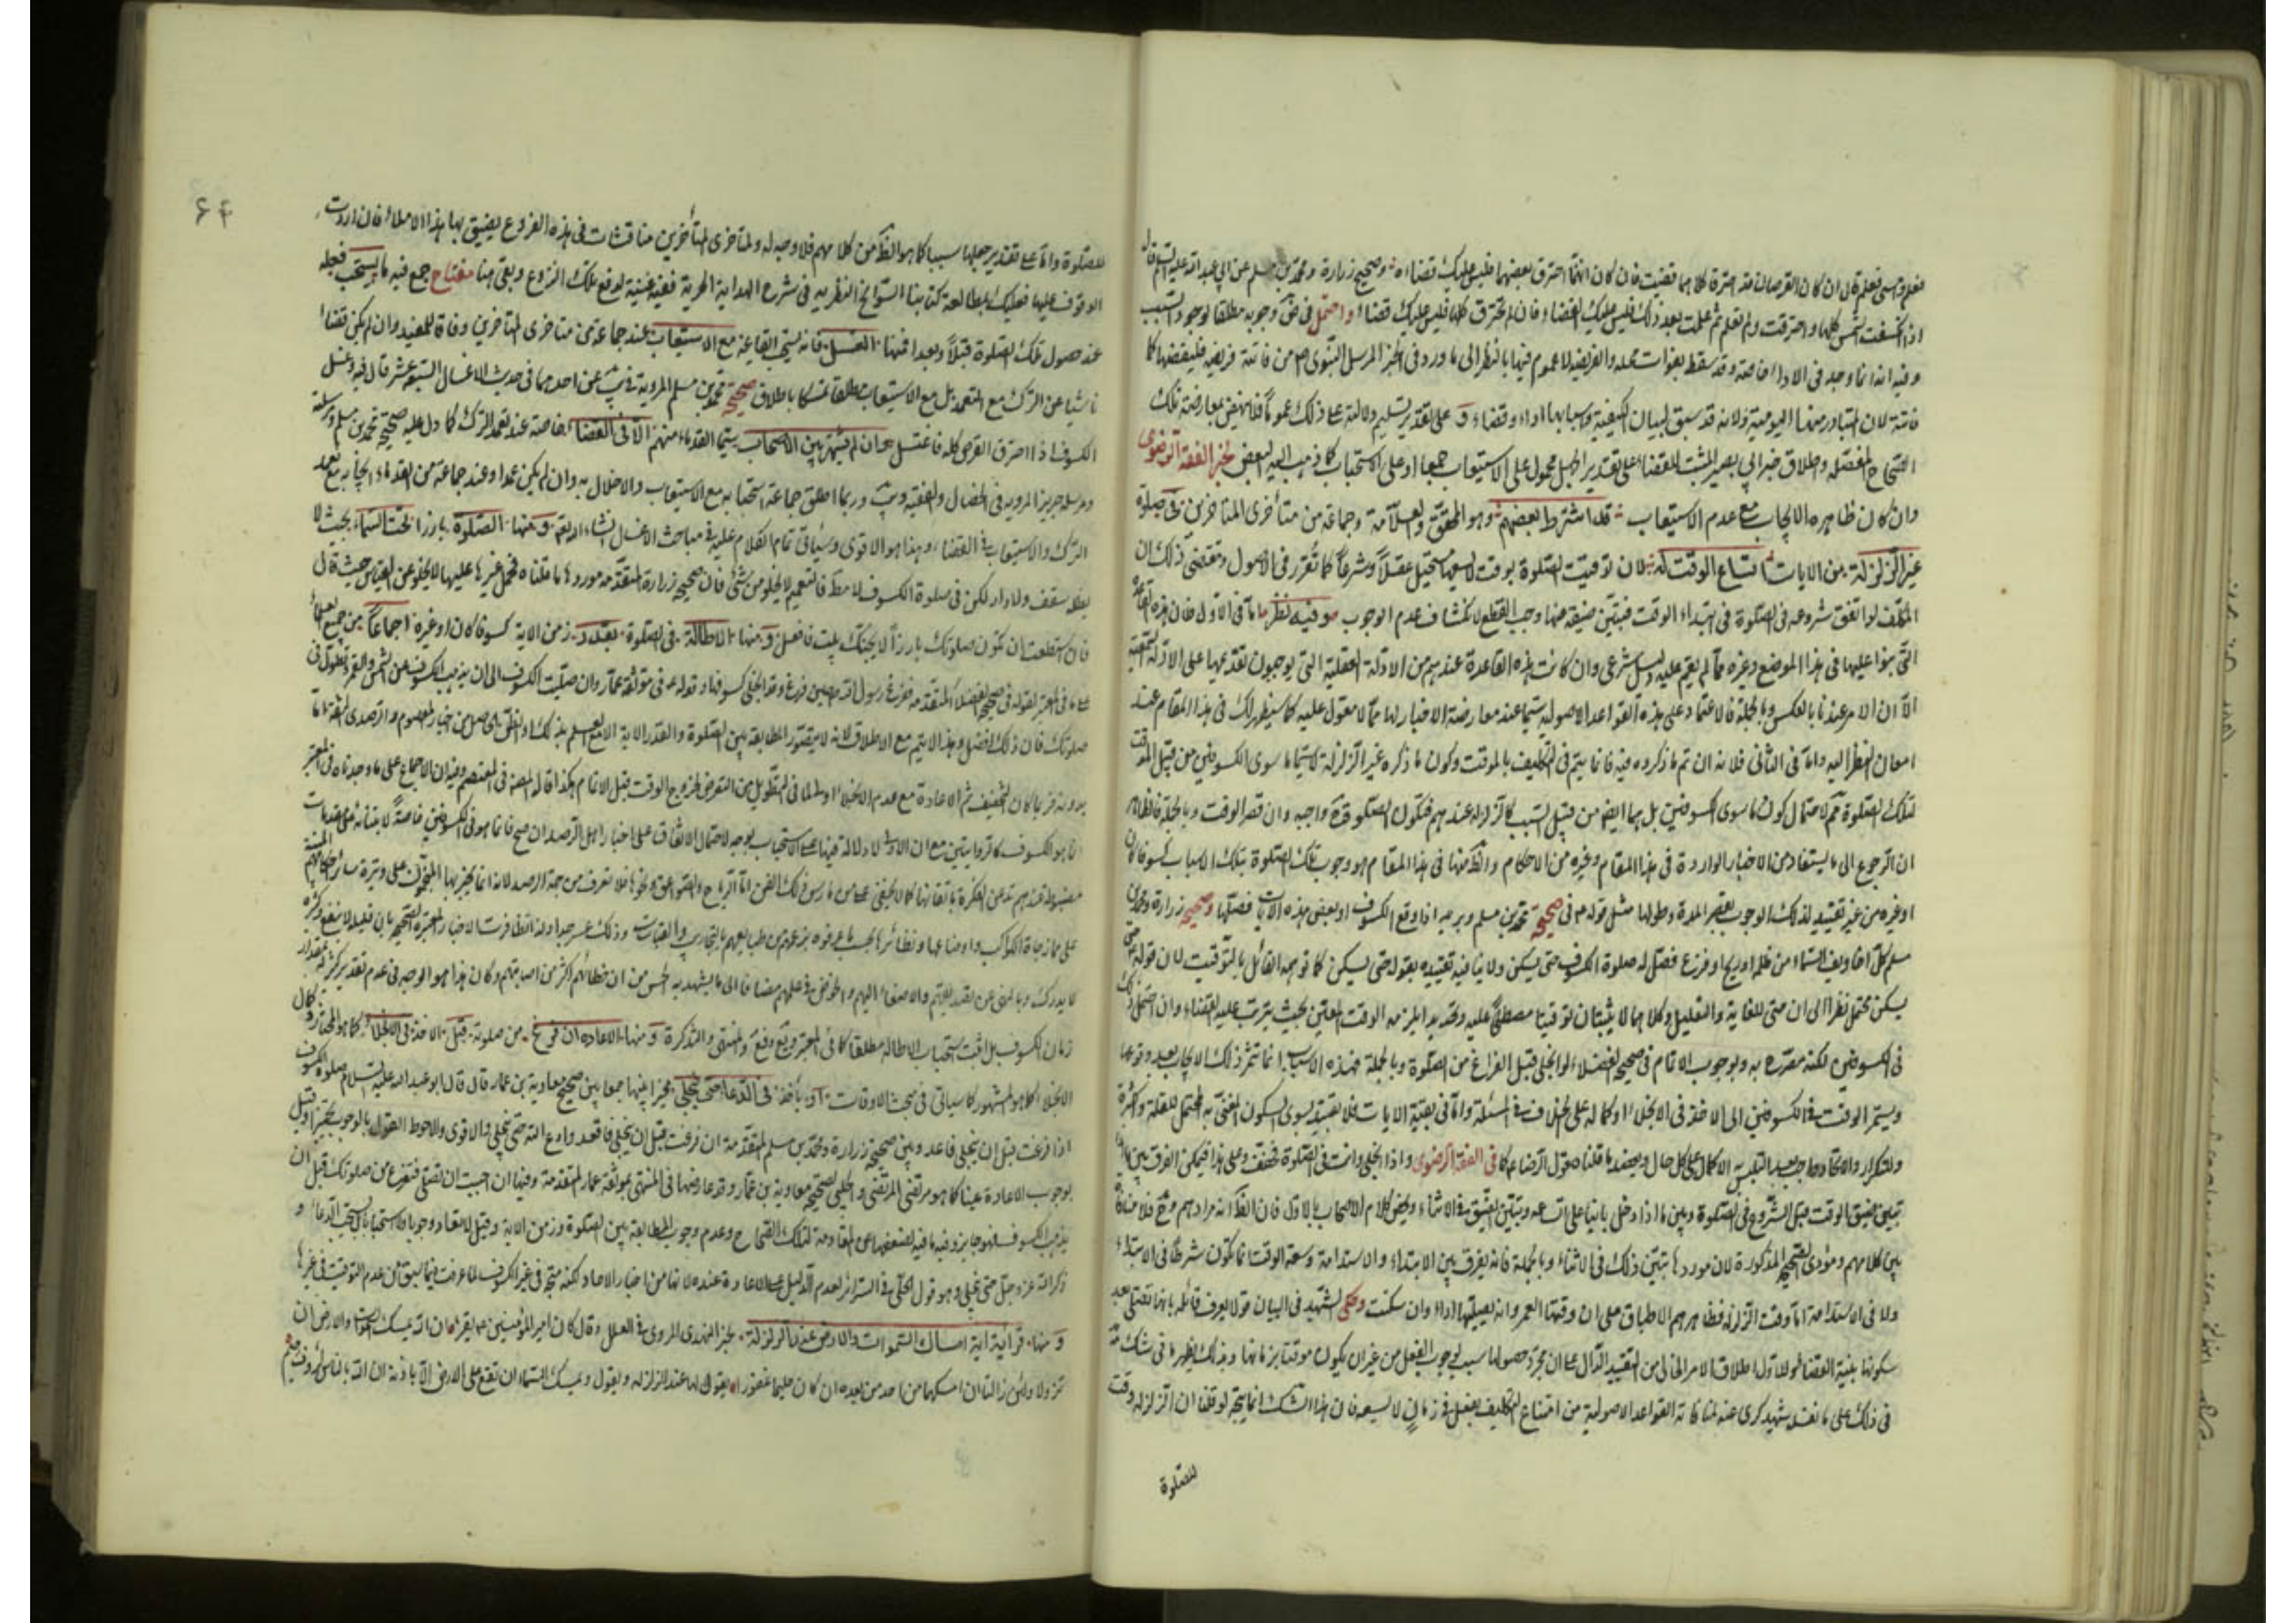 فعلم وان لم تعلم قال ان كان القرصان قد احترقا كلاهما قضيت فان كان انما احترق بعضهما فليس عليك قضاؤه وصحيح زرارة ومحمد بن مسلم عن ابي عبد الله عليه السلم قال
اذا انكسفت الشمس كلها واحترقت ولم تعلم ثم علمت بعد ذلك فليس عليك القضاء وان لم تحترق كلها فليس عليك قضاء واحتمل في وجوبه مطلقا لوجود السبب
وفيه انه انما وجد في الاداء خاصة وقد سقط بفوات محله والفريضة لا عموم فيها بالنظر الى ما ورد في الخبر المرسل النبوي من فاتته فريضة فليقضها كما
فاتته لان المتبادر منها اليومية ولانه قد سبق لبيان الكيفية واداء وقضاء و على تقدير تسليم دلالته على ذلك عموما فلا تنهض بمعارضة تلك
الصحاح المفصلة واطلاق خبر ابي بصير المثبت للقضاء على تقدير محمول على الاستيعاب جمعا او على الاستحباب كما ذهب اليه البعض لخبر الفقه الرضوي
وان كان ظاهره الايجاب مع عدم الاستيعاب قد اشترط بعضهم وهو المحقق والعلامة وجماعة من متأخري المتأخرين في صلوة
غير الزلزلة من الايات اتساع الوقت له لان توقيت الصلوة بوقت لا يسعها مستحيل عقلا وشرعا كما تقرر في الاصول ومقتضى ذلك ان
المكلف لو اتفق شروعه في الصلوة في ابتداء الوقت فتبين ضيقه عنها وجب القطع لانكشاف عدم الوجوب وفيه نظر اما في الاول فان هذه القاعدة
التي بنوا عليها في هذا الموضع وغيره مما لم يقم عليه دليل شرعي وان كانت هذه القاعدة عندهم من الادلة العقلية التي يوجبون تقديمها على الادلة السمعية
الا ان الامر عندنا بالعكس وبالجملة فالاعتماد على هذه القواعد الاصولية سيما عند معارضة الاخبار لها مما لا معول عليه كما سيظهر لك في هذا المقام عند
امعان النظر اليه واما في الثاني فلانه ان تم ما ذكروه فيه فانما يتم في التكليف بالموقت وكون ما ذكره غير الزلزلة لا سيما ما سوى الكسوفين من قبيل الموقت
لتلك الصلوة مم لاحتمال كون ما سوى الكسوفين بل هما ايضا من قبيل السبب كالزلزلة عندهم فتكون الصلوة واجبة وان قصر الوقت وبالجملة فالظاهر
ان الرجوع الى ما يستفاد من الاخبار الواردة في هذا المقام وغيره من الاحكام والظ منها في هذا المقام هو وجوب تلك الصلوة بتلك الاسباب كسوفا كان
او غيره من غير تقييد لذلك الوجوب بقصر المدة وطولها مثل قوله ع في صحيحة محمد بن مسلم وبريد اذا وقع الكسوف او بعض هذه الايات فصلها وصحيحة زرارة ومحمد بن
مسلم كل اخاويف السماء من ظلمة او ريح او فزع فصل له صلوة الكسوف حتى يسكن ولا ينافيه تقييده بقوله حتى يسكن كما توهمه القائل بالتوقيت لان قوله حتى
يسكن يحتمل نظرا الى ان حتى للغاية والتعليل وكلاهما لا يثبتان توقيتا مصطلحا عليه وتحديدا يلزمه الوقت المعين بحيث يترتب عليه القضاء وان احتمل ذلك
في الكسوفين لكنه مصرح به وبوجوب الاتمام في صحيح الفضلاء لو انجلى قبل الفراغ من الصلوة وبالجملة فهذه الاسباب انما تثمر ذلك الايجاب بعد وقوعها
ويستمر الوقت في الكسوفين الى الاخذ في الانجلاء او كماله على الخلاف في المسئلة واما في بقية الايات فلا تقييد سوى السكون المغيى به المحتمل للقلة والكثرة
والتكرار والاتحاد واجب بعد التلبس به الاكمال على كل حال ويعضد ما قلناه قول الرضا ع كما في الفقه الرضوي واذا انجلى وانت في الصلوة فخفف وعلى هذا فيمكن الفرق بين ما اذا
تبين ضيق الوقت قبل الشروع في الصلوة وبين ما اذا دخل بانيا على اتساعه وتبين الضيق في الاثناء ويخص كلام الاصحاب بالاول فان الظ انه مرادهم وح فلا منافاة
بين كلامهم ومؤدى الصحيح المذكورة لان موردها تبين ذلك في الاثناء وبالجملة فانه يفرق بين الابتداء والاستدامة وسعة الوقت انما تكون شرطا في الابتداء
ولا في الاستدامة اما وقت الزلزلة فظاهرهم الاطباق على ان وقتها العمر وانه يصليها اداء وان سكنت وحكى الشهيد في البيان قولا لم يعرف قائله بانها تصلى بعد
سكونها بنية القضاء ولنا اطلاق الامر الخالي من التقييد الدال على ان مجرد حصولها سبب لوجوب الفعل من غير ان يكون موقتا بزمانها وبذلك يظهر ما في شك
في ذلك على ما نقله شهيد كرى عنه لمنافاته القواعد الاصولية من امتناع التكليف بفعل في زمان لا يسعه فان هذا الشك انما يتجه لو قلنا ان الزلزلة وقت
للصلوة
٤٦
للصلوة واما على تقدير جعلها سببا كما هو الظ من كلامهم فلا وجه له ولمتأخري المتأخرين مناقشات في هذه الفروع يضيق بها هذا الاملاء فان اردت
الوقوف عليها فعليك بمطالعة كتابنا السوانح النظرية في شرح البداية الحرية ففيه غنية لدفع تلك الفروع وبقي هنا مفتاح جمع فيه ما يستحب فعله
عند حصول تلك الصلوة قبلا وبعدا فمنها الغسل فانه يستحب ايقاعه مع الاستيعاب عند جماعة من متأخري المتأخرين وفاقا للمفيد وان لم يكن قضاء
ناشيا عن الترك مع التعمد بل مع الاستيعاب مطلقا تمسكا باطلاق صحيح محمد بن مسلم المروية في يب عن احدهما في حديث الاغسال السبعة عشر قال فيه وغسل
الكسوف اذا احترق القرص كله فاغتسل وان لم يشتهر بين الاصحاب سيما القدماء منهم الا في القضاء خاصة عند تعمد الترك كما دل عليه صحيح محمد بن مسلم ومرسلة
ومرسلة حريز المروية في الخصال والفقيه ويب وربما اطلق جماعة استحبابه مع الاستيعاب والاخلال به وان لم يكن عمدا وعند جماعة من القدماء ايجابه مع تعمد
الترك والاستيعاب في القضاء وهذا هو الاقوى وسيأتي تمام الكلام عليه في مباحث الاغسال انشاء الله تع ومنها الصلوة بارزا تحت السماء بحيث لا
يظله سقف ولا دار لكن في صلوة الكسوف لا مط فالتعميم لا يخلو من شئ فان صحيح زرارة المتقدمة موردها ما قلناه فحمل غيرها عليها لا يخلو عن القياس حيث قال
فان استطعت ان تكون صلوتك بارزا لا يجنك بيت فافعل ومنها الاطالة في الصلوة بقدر زمن الاية كسوفا كان او غيره اجماعا من جميع العلماء
على ما في المعتبر لقوله في صحيح الفضلاء المتقدمة ففزع رسول الله حين فرغ وقد انجلى كسوفها وقوله ع في موثقة عمار وان صليت الكسوف الى ان يذهب الكسوف عن الشمس والقمر وتطول في
صلوتك فان ذلك افضل وهذا لا يتم مع الاطلاق لانه لا يتصور المطابقة بين الصلوة والقدر الاية الا مع العلم بذلك او الظن الحاصل من اخبار المعصوم والرصدي الثقة اما
بدونه فربما كان التخفيف ثم الاعادة مع عدم الانجلاء اولى لما في التطويل من التعرض لخروج الوقت قبل الاتمام هكذا قاله المص في المعتصم وفيه ان الاجماع على ما وجدناه في المعتبر
انما هو الكسوف كالروايتين مع ان الاولى لا دلالة فيها على الاستحباب بوجه لاحتمال الاتفاق على اخبار اهل الرصد ان صح فانما هو في الكسوفين خاصة لابتنائه على مقدمات
على ممازجات الكواكب واوضاعها ونظائرها بحسب ما عرفوه بزعمهم من طبايعهم بالتجارب والقياسات وذلك عسر جدا ولهذا تظافرت الاخبار المعتبرة الصحيحة بان قليله لا ينفع وكثيره
لا يدرك وبالنهي عن تقليدهم والاصغاء اليهم والخوض في علمهم مضافا الى ما يشهد به الحس من ان خطائهم اكثر من اصابتهم وكان هذا هو الوجه في عدم تقديم كثير له بمقدار
زمان الكسوف بل اثبت استحباب الاطالة مطلقا كما في المعتبر ويع وفع والمنتهى والتذكرة ومنها الاعادة ان فرغ من صلوته قبل الاخذ في الانجلاء كما هو المختار وكمال
الانجلاء كما هو المشهور كما سياتي في مبحث الاوقات او ياخذ في الدعاء حتى تنجلي مخيرا بينهما جمعا بين صحيح معاوية بن عمار قال قال ابو عبد الله عليه السلام صلوة الكسوف
اذا فرغت قبل ان ينجلي فاعد وبين صحيحة زرارة ومحمد بن مسلم المتقدمة ان فرغت قبل ان ينجلي فاقعد وادع الله حتى ينجلي والاقوى والاحوط القول بالوجوب تخييرا وقيل
بوجوب الاعادة عينا كما هو مرتضى المرتضى والحلبي لصحيح معاوية بن عمار وقد عارضها في المنتهى بموثقة عمار المتقدمة وفيها ان احببت ان تصلي فتفرغ من صلوتك قبل ان
يذهب الكسوف فهو جايز وفيه ما فيه لضعفها عن المقاومة لتلك الصحاح وعدم وجوب المطابقة بين الصلوة وزمن الاية وقيل لا تعاد وجوبا ولا استحبابا بل يستحب الدعاء و
ذكر الله عز وجل حتى ينجلي وهو قول الحلي في السرائر لعدم الدليل على الاعادة عنده لانها من اخبار الاحاد لكنه متجه في غير الكسوف لما عرفت فيما سبق من عدم التوقيت في غيرها
ومنها قراءة اية امساك السموات والارض عند الزلزلة لخبر النهدي المروي في العلل وقال كان امير المؤمنين ع يقرء ان الله يمسك السموات والارض ان
تزولا ولئن زالتا ان امسكهما من احد من بعده انه كان حليما غفورا يقولها عند الزلزلة ويقول ويمسك السماء ان تقع على الارض الا باذنه ان الله بالناس لرؤف رحيم